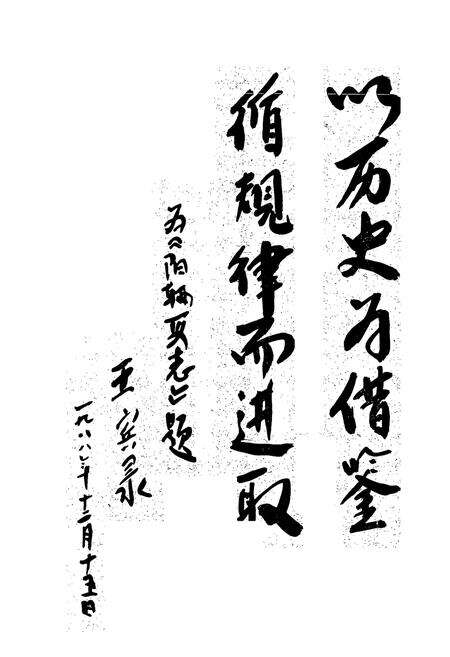 以历史为借鉴
循规律而进取
为《阳县志》题
王
一九八八年十二月十五日